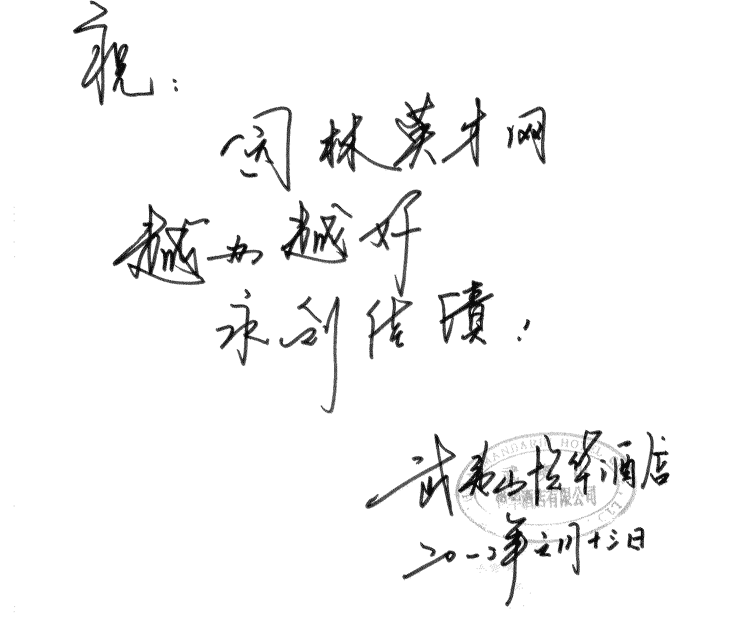 祝：
园林英才网
越办越好
永创佳绩！
武夷山悦华酒店
MANDARIN HOTEL
酒店有限公司
二〇一二年三月十三日